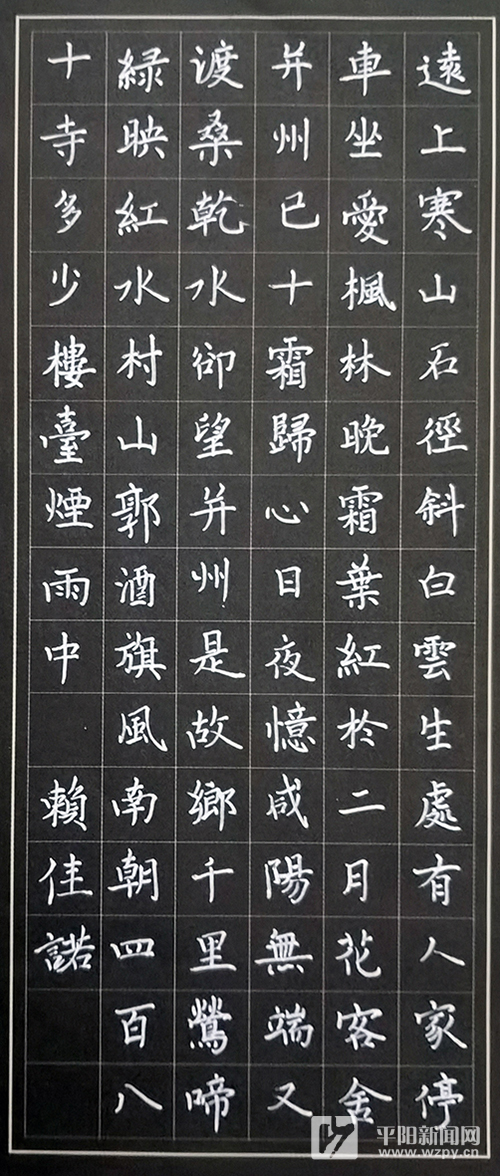 遠上寒山石徑斜白雲生處有人家停
車坐愛楓林晚霜葉紅於二月花客舍
并州已十霜歸心日夜憶咸陽無端又
渡桑乾水卻望并州是故鄉千里鶯啼
綠映紅水村山郭酒旗風南朝四百八
十寺多少樓臺煙雨中 賴佳諾
平阳新闻网
www.wzpy.cn